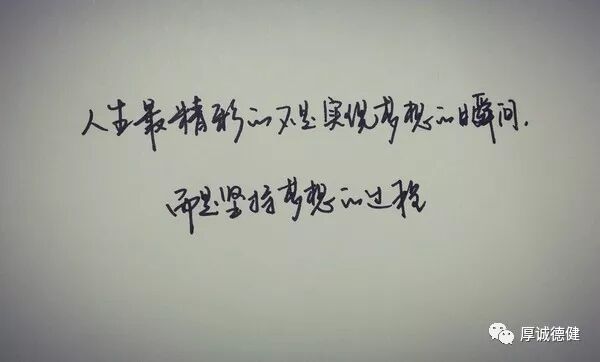 人生最精彩的不是实现梦想的瞬间,
而是坚持梦想的过程
厚诚德健